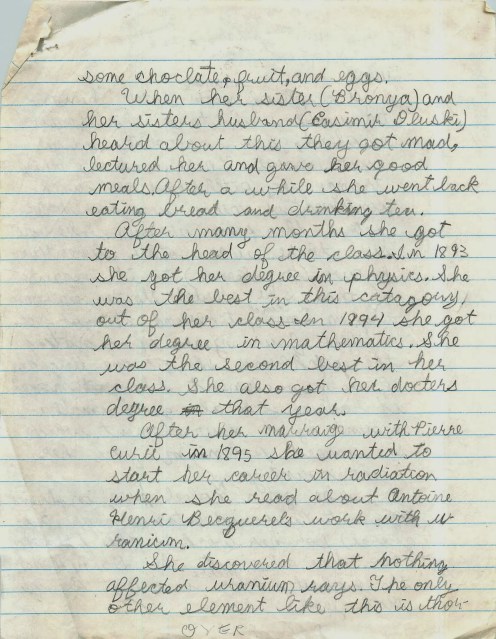 some choclate, fruit, and eggs.
When her sister (Bronya) and
her sisters husband (Casimir Dluski)
heard about this they got mad,
lectured her and gave her good
meals. After a while she went back
eating bread and drinking tea.
After many months she got
to the head of the class. In 1893
she got her degree in physics. She
was the best in this catagory,
out of her class. In 1894 she got
her degree in mathematics. She
was the second best in her
class. She also got her docters
degree that year.
After her marraige with Pierre
Curie in 1895 she wanted to
start her career in radiation
when she read about Antoine
Henri Becquerels work with u
ranium.
She discovered that nothing
affected uranium rays. The only
other element like this is thor-
OVER